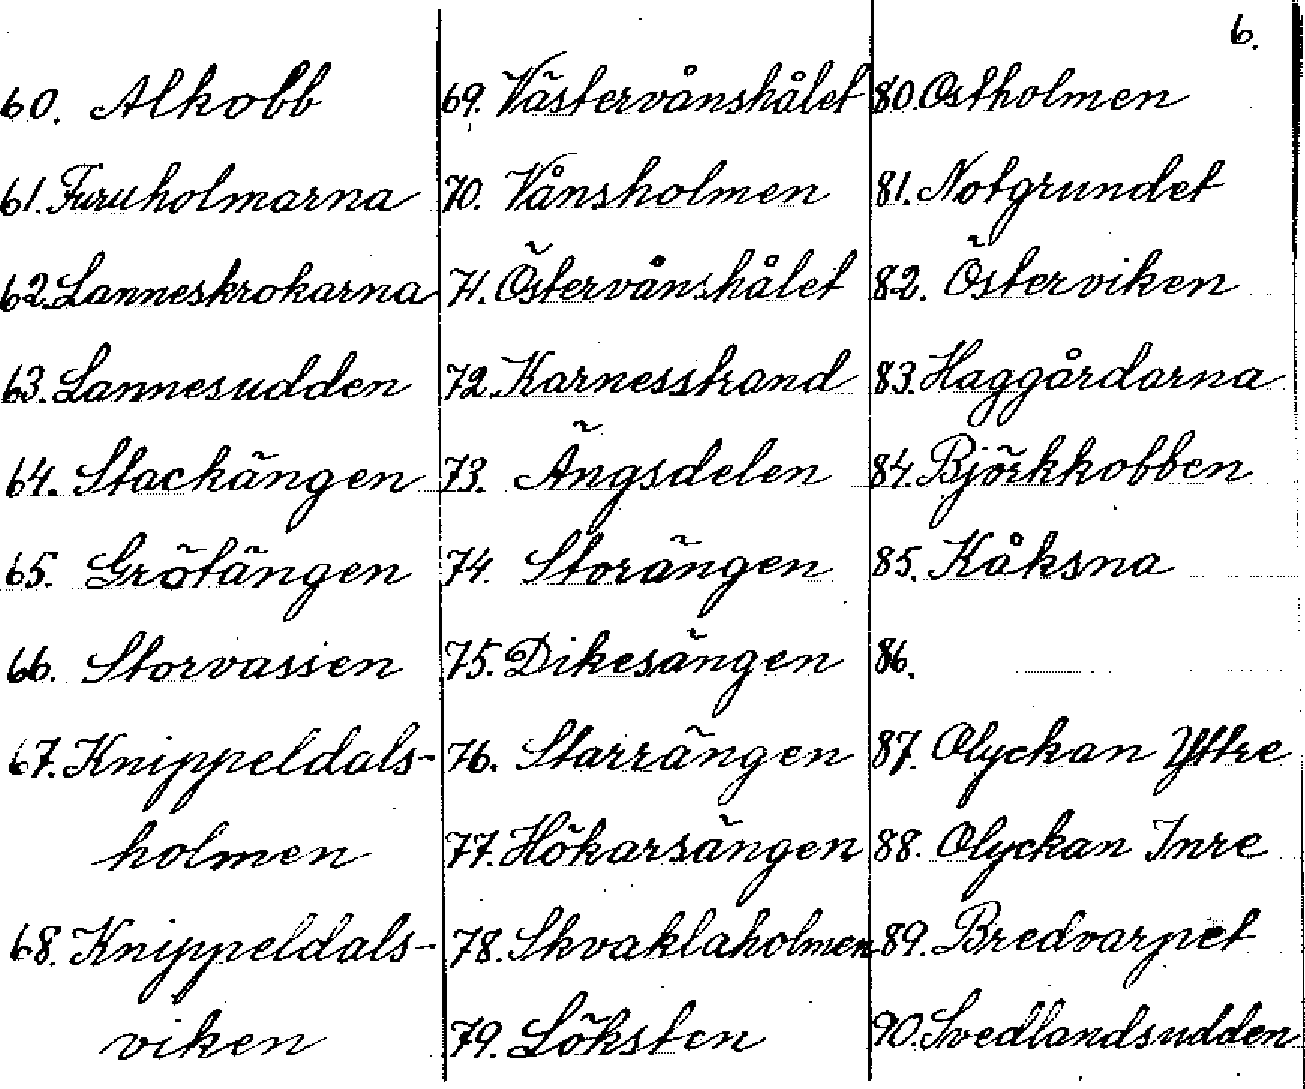 6.
60. Alkobb
61. Furuholmarna
62. Lanneskrokarna
63. Lannesudden
64. Stackängen
65. Grötängen
66. Storvassen
67. Knippeldals-
holmen
68. Knippeldals-
viken
69. Västervånshålet
70. Vånsholmen
71. Östervånshålet
72. Karnesstrand
73. Ängsdelen
74. Storängen
75. Dikesängen
76. Starrängen
77. Hökarsängen
78. Skvaklaholmen
79. Löksten
80. Ostholmen
81. Notgrundet
82. Österviken
83. Haggårdarna
84. Björkkobben
85. Kåksna
86.
87. Olyckan Yttre
88. Olyckan Inre
89. Bredvarpet
90. Svedlandsudden